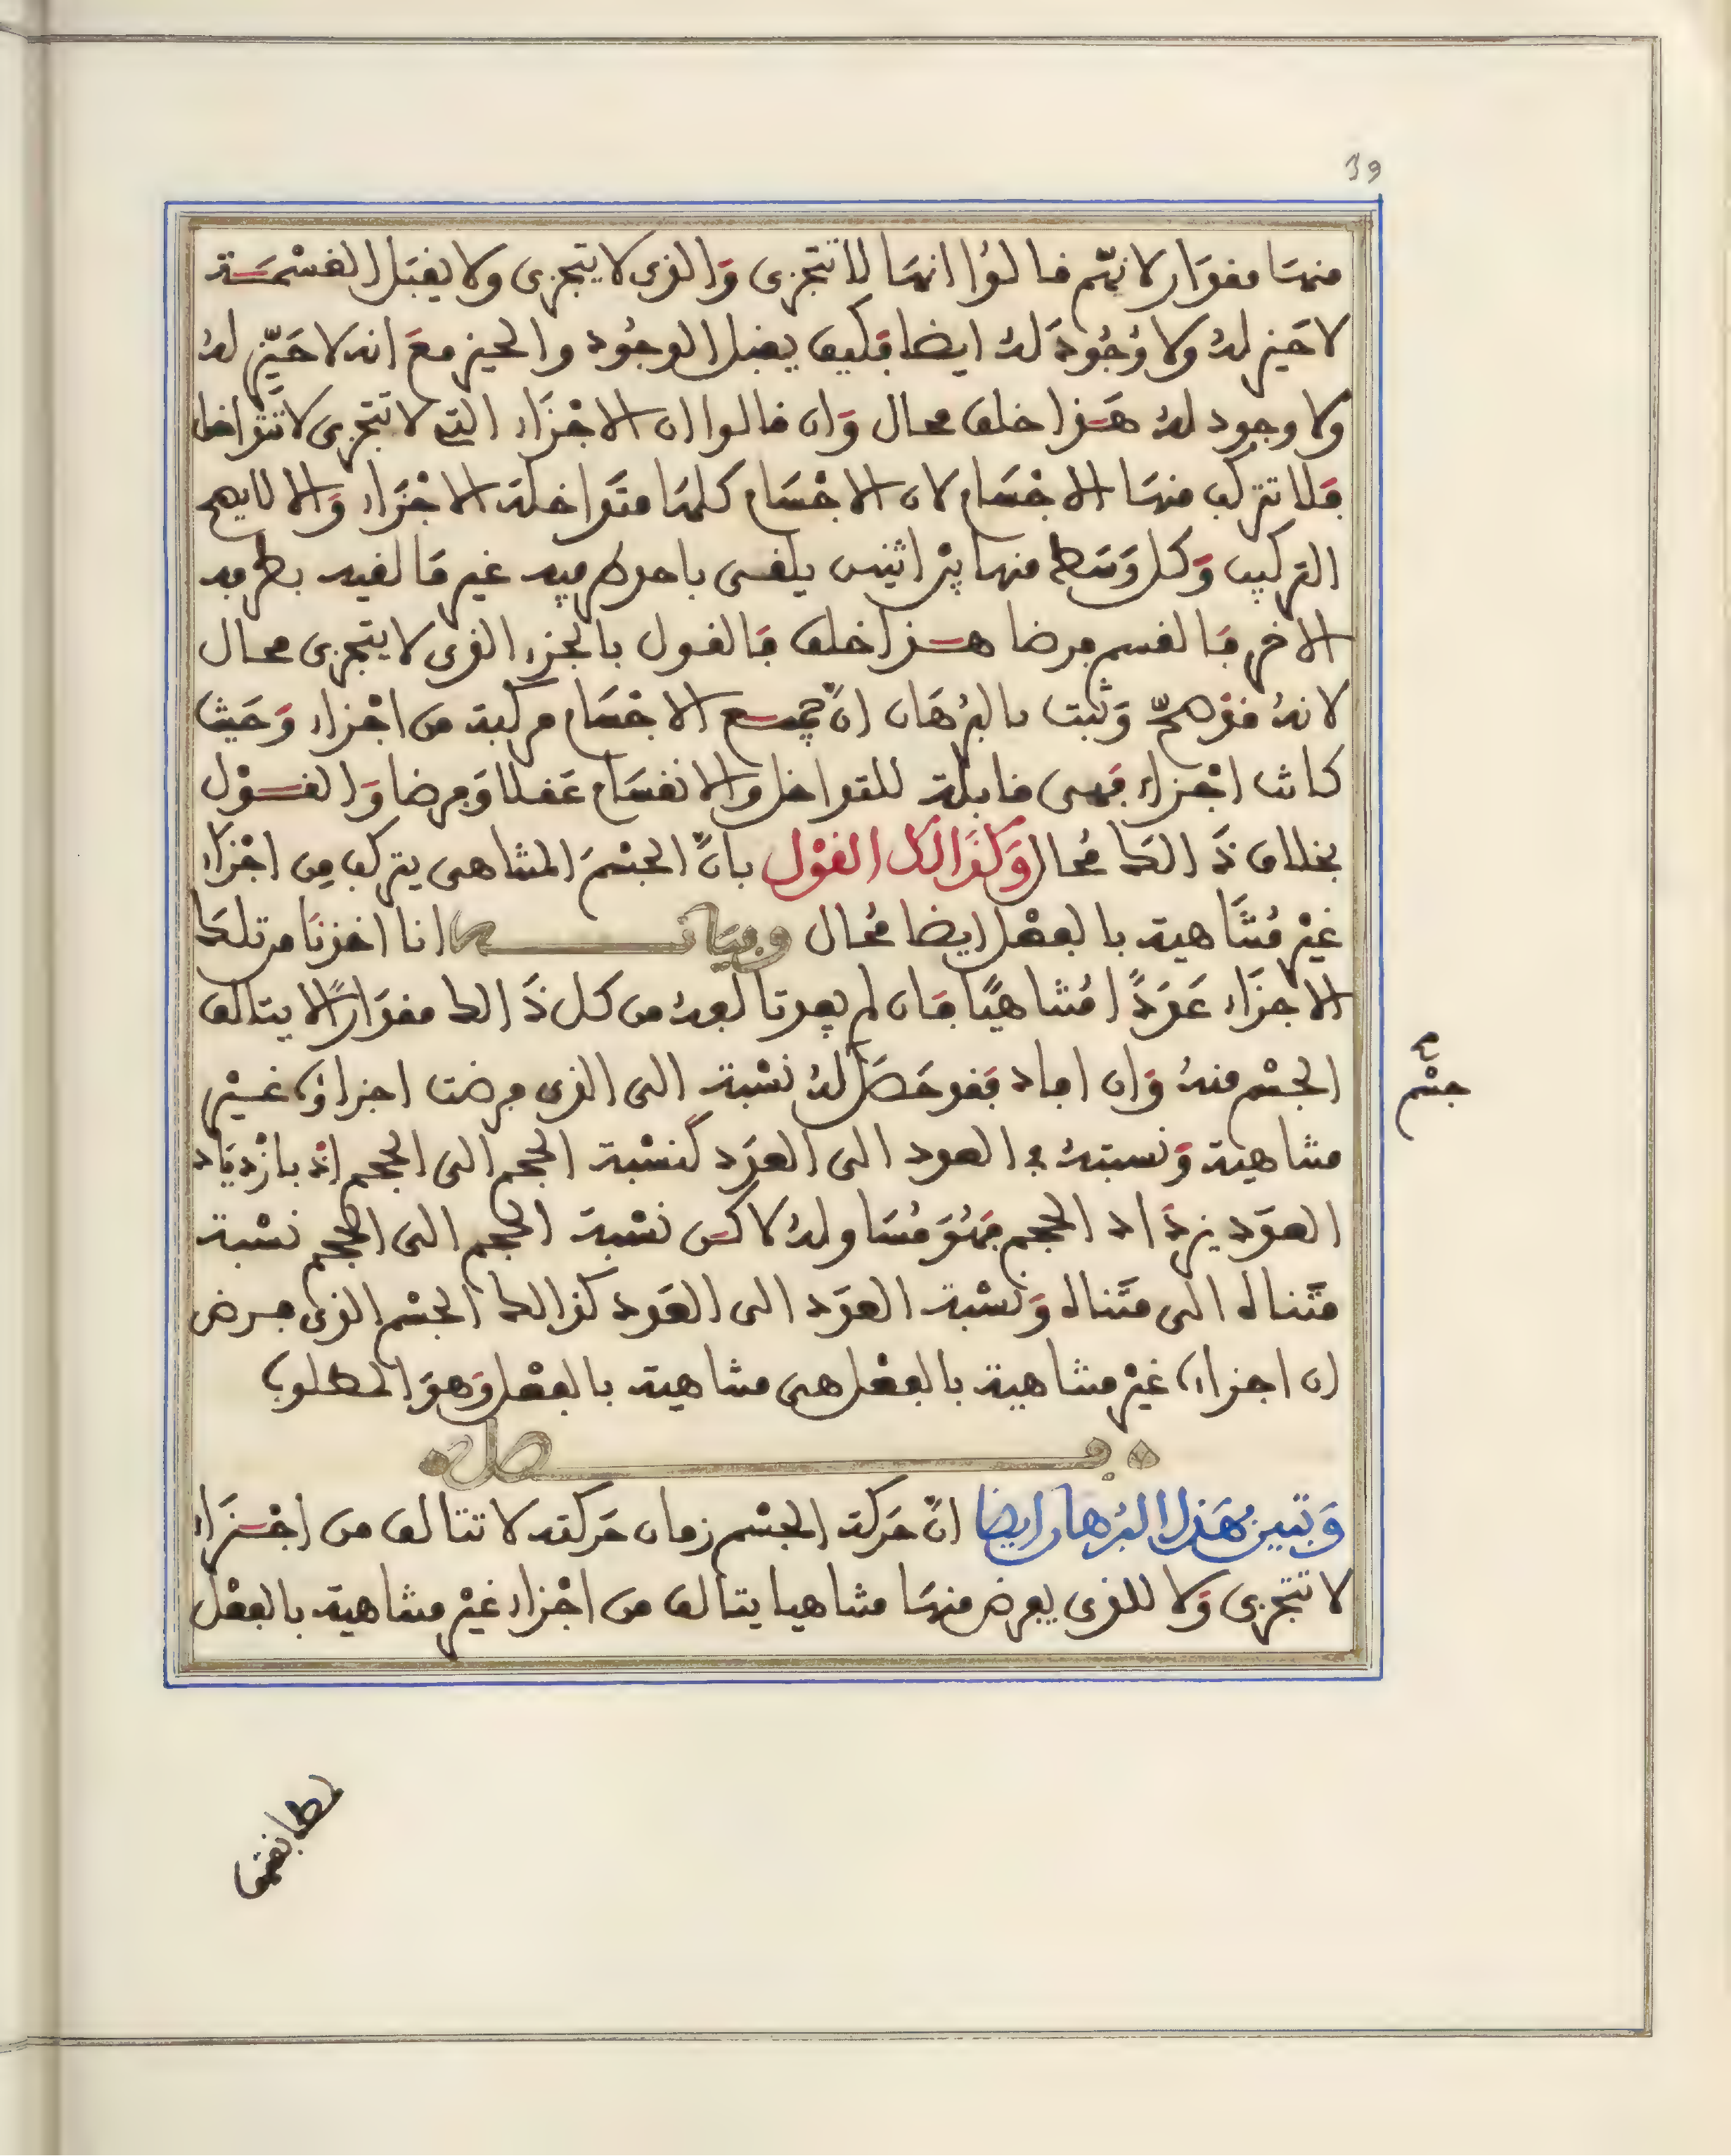 39
منها مقدار لانهم قالوا انها لا تتجزى والذى لا يتجزى ولا يقبل القسمة
لا حيز له ولا وجود له ايضا فكيف يقبل الوجود والحيز مع انه لا حيز له
ولا وجود له هذا خلف محال وان قالوا ان الاجزاء التى لا تتجزى لا تتداخل
فلا تتركب منها الاجسام لان الاجسام كلها متداخلة الاجزاء والا لا يصح
التركيب وكل وسط منها بين اثنين يلقى باحد طرفيه غير ما لقيه بطرفه
الاخر فالقسم فرضا هذا خلف فالقول بالجزء الذى لا يتجزى محال
لانه فد وهم وثبت بالبرهان ان جميع الاجسام مركبة من اجزاء وحيث
كانت اجزاء فهى قابلة للتداخل والانقسام عقلا وفرضا والقول
بخلاف ذالك محال وكذالك القول بان الجسم المتناهى يتركب من اجزاء
غير متناهية بالفعل ايضا محال وبيانه انا اخذنا من تلك
الاجزاء عددا متناهيا فان لم يفد تالفه من كل ذالك مقدارا لا يتالف
الجسم منه وان افاد فقد حصل له نسبة الى الذى فرضت اجزاؤه غير
جسم
متناهية ونسبته فى العدد الى العدد كنسبة الحجم الى الحجم اذ بازدياد
العدد يزداد الحجم فهو مساو له لاكن نسبة الحجم الى الحجم نسبة
متناه الى متناه ونسبة العدد الى العدد كذالك الجسم الذى فرض
ان اجزاءه غير متناهية بالفعل هى متناهية بالفعل وهو المطلوب
فصل
وتبين بهذا البرهان ايضا ان حركة الجسم زمان حركته لا تتالف من اجزاء
لا تتجزى ولا للذى يفرض منها متناهيا يتالف من اجزاء غير متناهية بالفعل